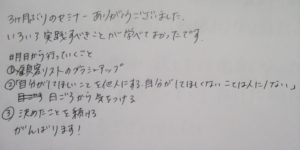 3ヶ月ぶりのセミナーありがとうございました。
いろいろ実践すべきことが学べてよかったです。
明日から行っていくこと
①顧客リストのブラシュアップ
②「自分がしてほしいことを他人にする。自分がしてほしくないことは人にしない」
日ごろから気をつける
③決めたことを続ける
がんばります!